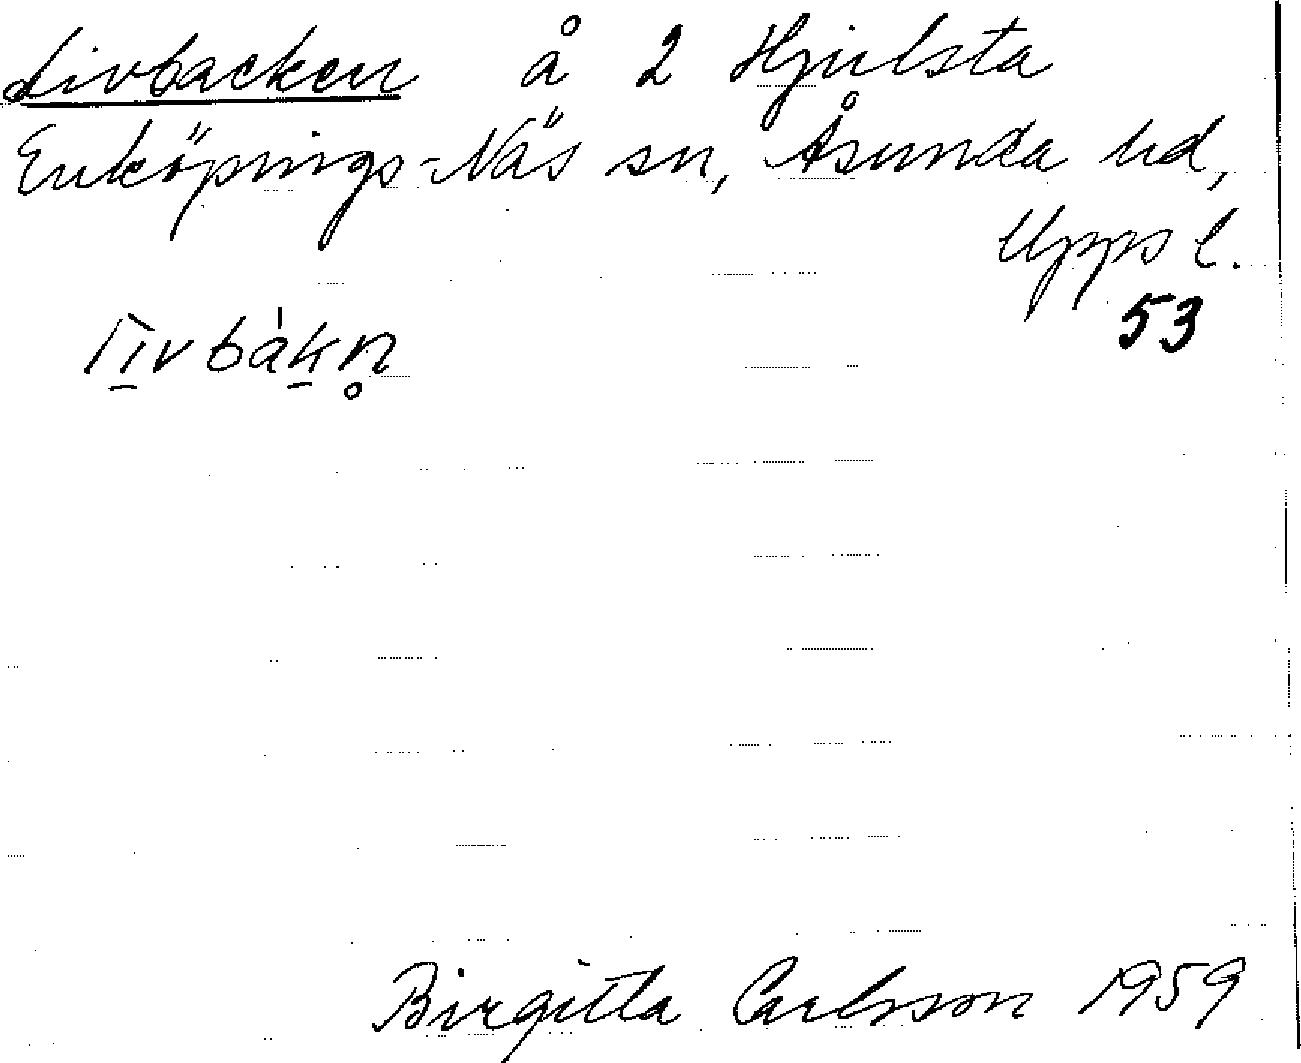 Livbacken å 2 Hjulsta
Enköpings-Näs sn, Åsunda hd,
Upps l.
53
li̠vbàk̠n̥
Birgitta Carlsson 1959